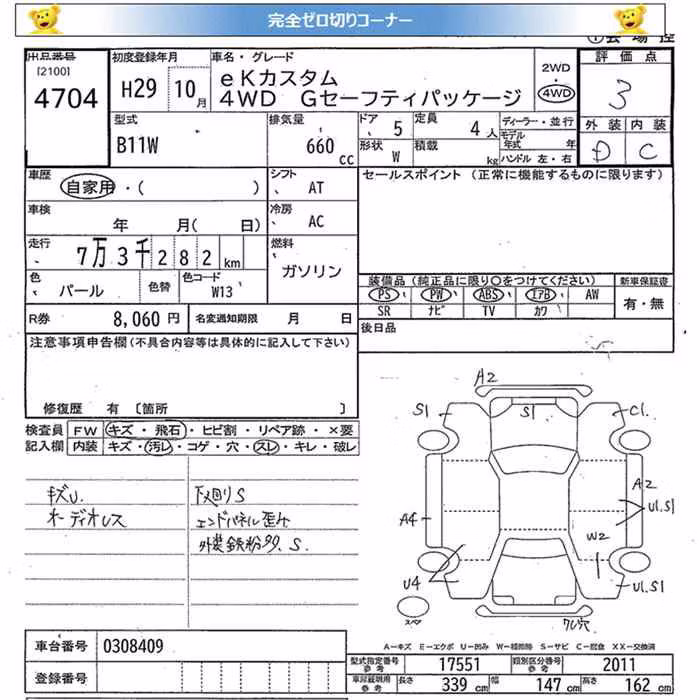 完全ゼロ切りコーナー
出品番号
[2100]
4704
初度登録年月
H29 10月
車名・グレード
eKカスタム
4WD Gセーフティパッケージ
2WD
・
4WD
評価点
3
外装 内装
D C
型式
B11W
排気量
660
cc
ドア
5
形状
W
定員
4人
積載
kg
ディーラー・並行
モデル
年式 年
ハンドル 左・右
車歴
自家用・( )
シフト
AT
セールスポイント(正常に機能するものに限ります)
車検
年 月( 日)
冷房
AC
走行
7万3千282km
燃料
ガソリン
色
パール
色替
色コード
W13
装備品(純正品に限り○をつけてください)
PS PW ABS エアB AW
SR ナビ TV カワ
新車保証書
有・無
R券 8,060円
名変通知期限 月 日
後日品
注意事項申告欄(不具合内容等は具体的に記入して下さい)
修復歴 有 [箇所 ]
検査員
記入欄
FW キズ・飛石・ヒビ割・リペア跡・×要
内装 キズ・汚レ・コゲ・穴・スレ・キレ・破レ
キズU.
オーディオレス
下廻りS
エンドパネル歪み
外装鉄粉多.S.
A2
S1
S1
C1.
A2
U1.S1
A4
W2
U4
U1.S1
スペア
ワレ穴
A=キズ E=エクボ U=凹み W=補修跡 S=サビ C=腐食 XX=交換済
車台番号 0308409
登録番号
型式指定番号
参考
17551
類別区分番号
参考
2011
車両範囲用
参考
長さ 339cm
幅 147cm
高さ 162cm